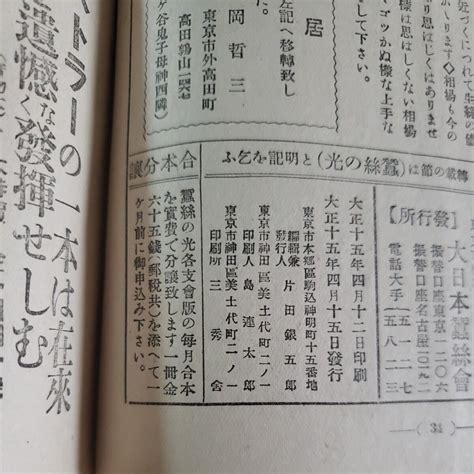 相場は思はしくない相場
マゴツかぬ様な上手な
して下さい。
居
左記へ移轉致し
た。
岡哲三
東京市外高田町
高田鶉山一六七
ヶ谷鬼子母神西隣
轉載の節は(蠶絲の光)と明記を乞ふ
發行所
大日本蠶絲會
振替口座東京一二〇六
振替口座名古屋
電話大手
大正十五年四月十二日印刷
大正十五年四月十五日發行
東京市本郷區駒込神明町十五番地
編輯兼發行人 片田銀五郎
東京市神田區美土代町二ノ一
印刷人 島連太郎
東京市神田區美土代町二ノ一
印刷所 三秀舍
合本分讓
蠶絲の光各支會版の毎月合本
を實費で分讓致します一冊金
六十五錢(郵税共)を添へて一
ケ月前に御申込み下さい。
(34)
トラーの一本は在來
遺憾なく發揮せしむ